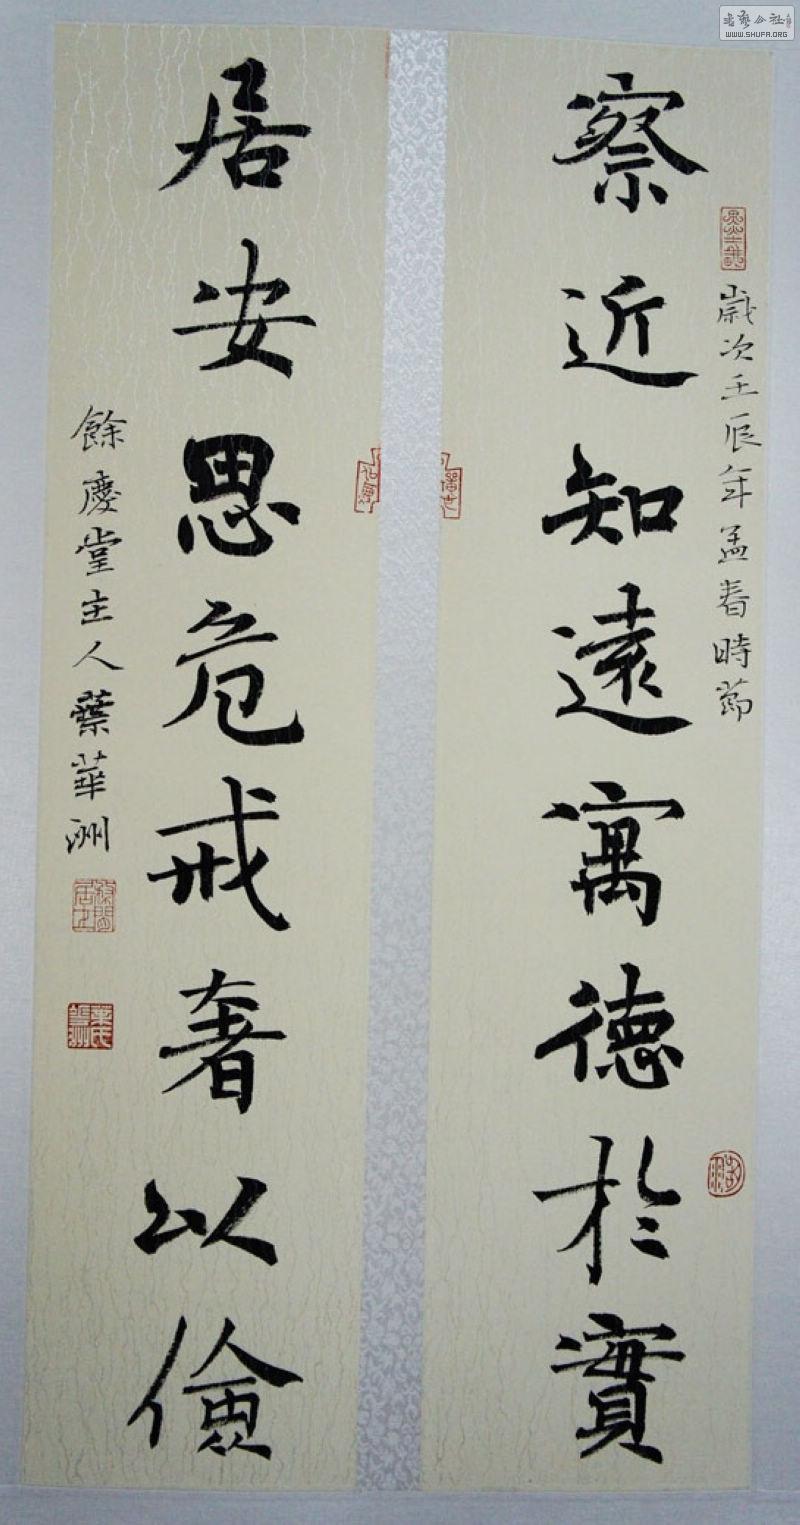 歲次壬辰年孟春時節
察近知遠寓德於實
居安思危戒奢以儉
餘慶堂主人葉華洲
書藝公社
WWW.SHUFA.ORG